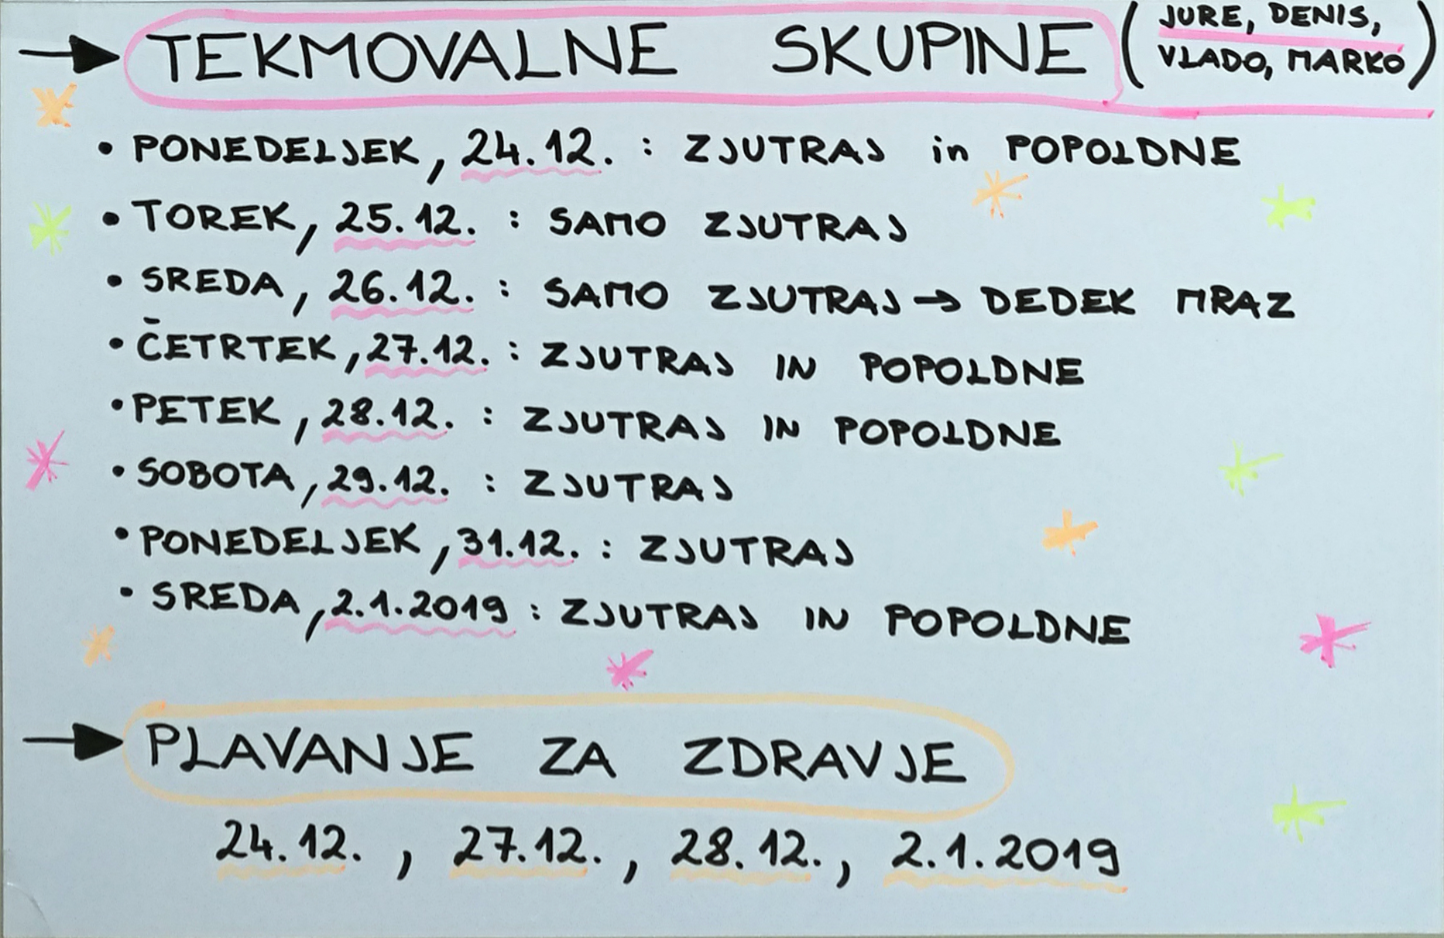 → TEKMOVALNE SKUPINE (JURE, DENIS,
VLADO, MARKO)
• PONEDELJEK, 24.12. : ZJUTRAJ in POPOLDNE
• TOREK, 25.12. : SAMO ZJUTRAJ
• SREDA, 26.12. : SAMO ZJUTRAJ → DEDEK MRAZ
• ČETRTEK, 27.12. : ZJUTRAJ IN POPOLDNE
• PETEK, 28.12. : ZJUTRAJ IN POPOLDNE
• SOBOTA, 29.12. : ZJUTRAJ
• PONEDELJEK, 31.12. : ZJUTRAJ
• SREDA, 2.1.2019 : ZJUTRAJ IN POPOLDNE
→ PLAVANJE ZA ZDRAVJE
24.12. , 27.12. , 28.12. , 2.1.2019